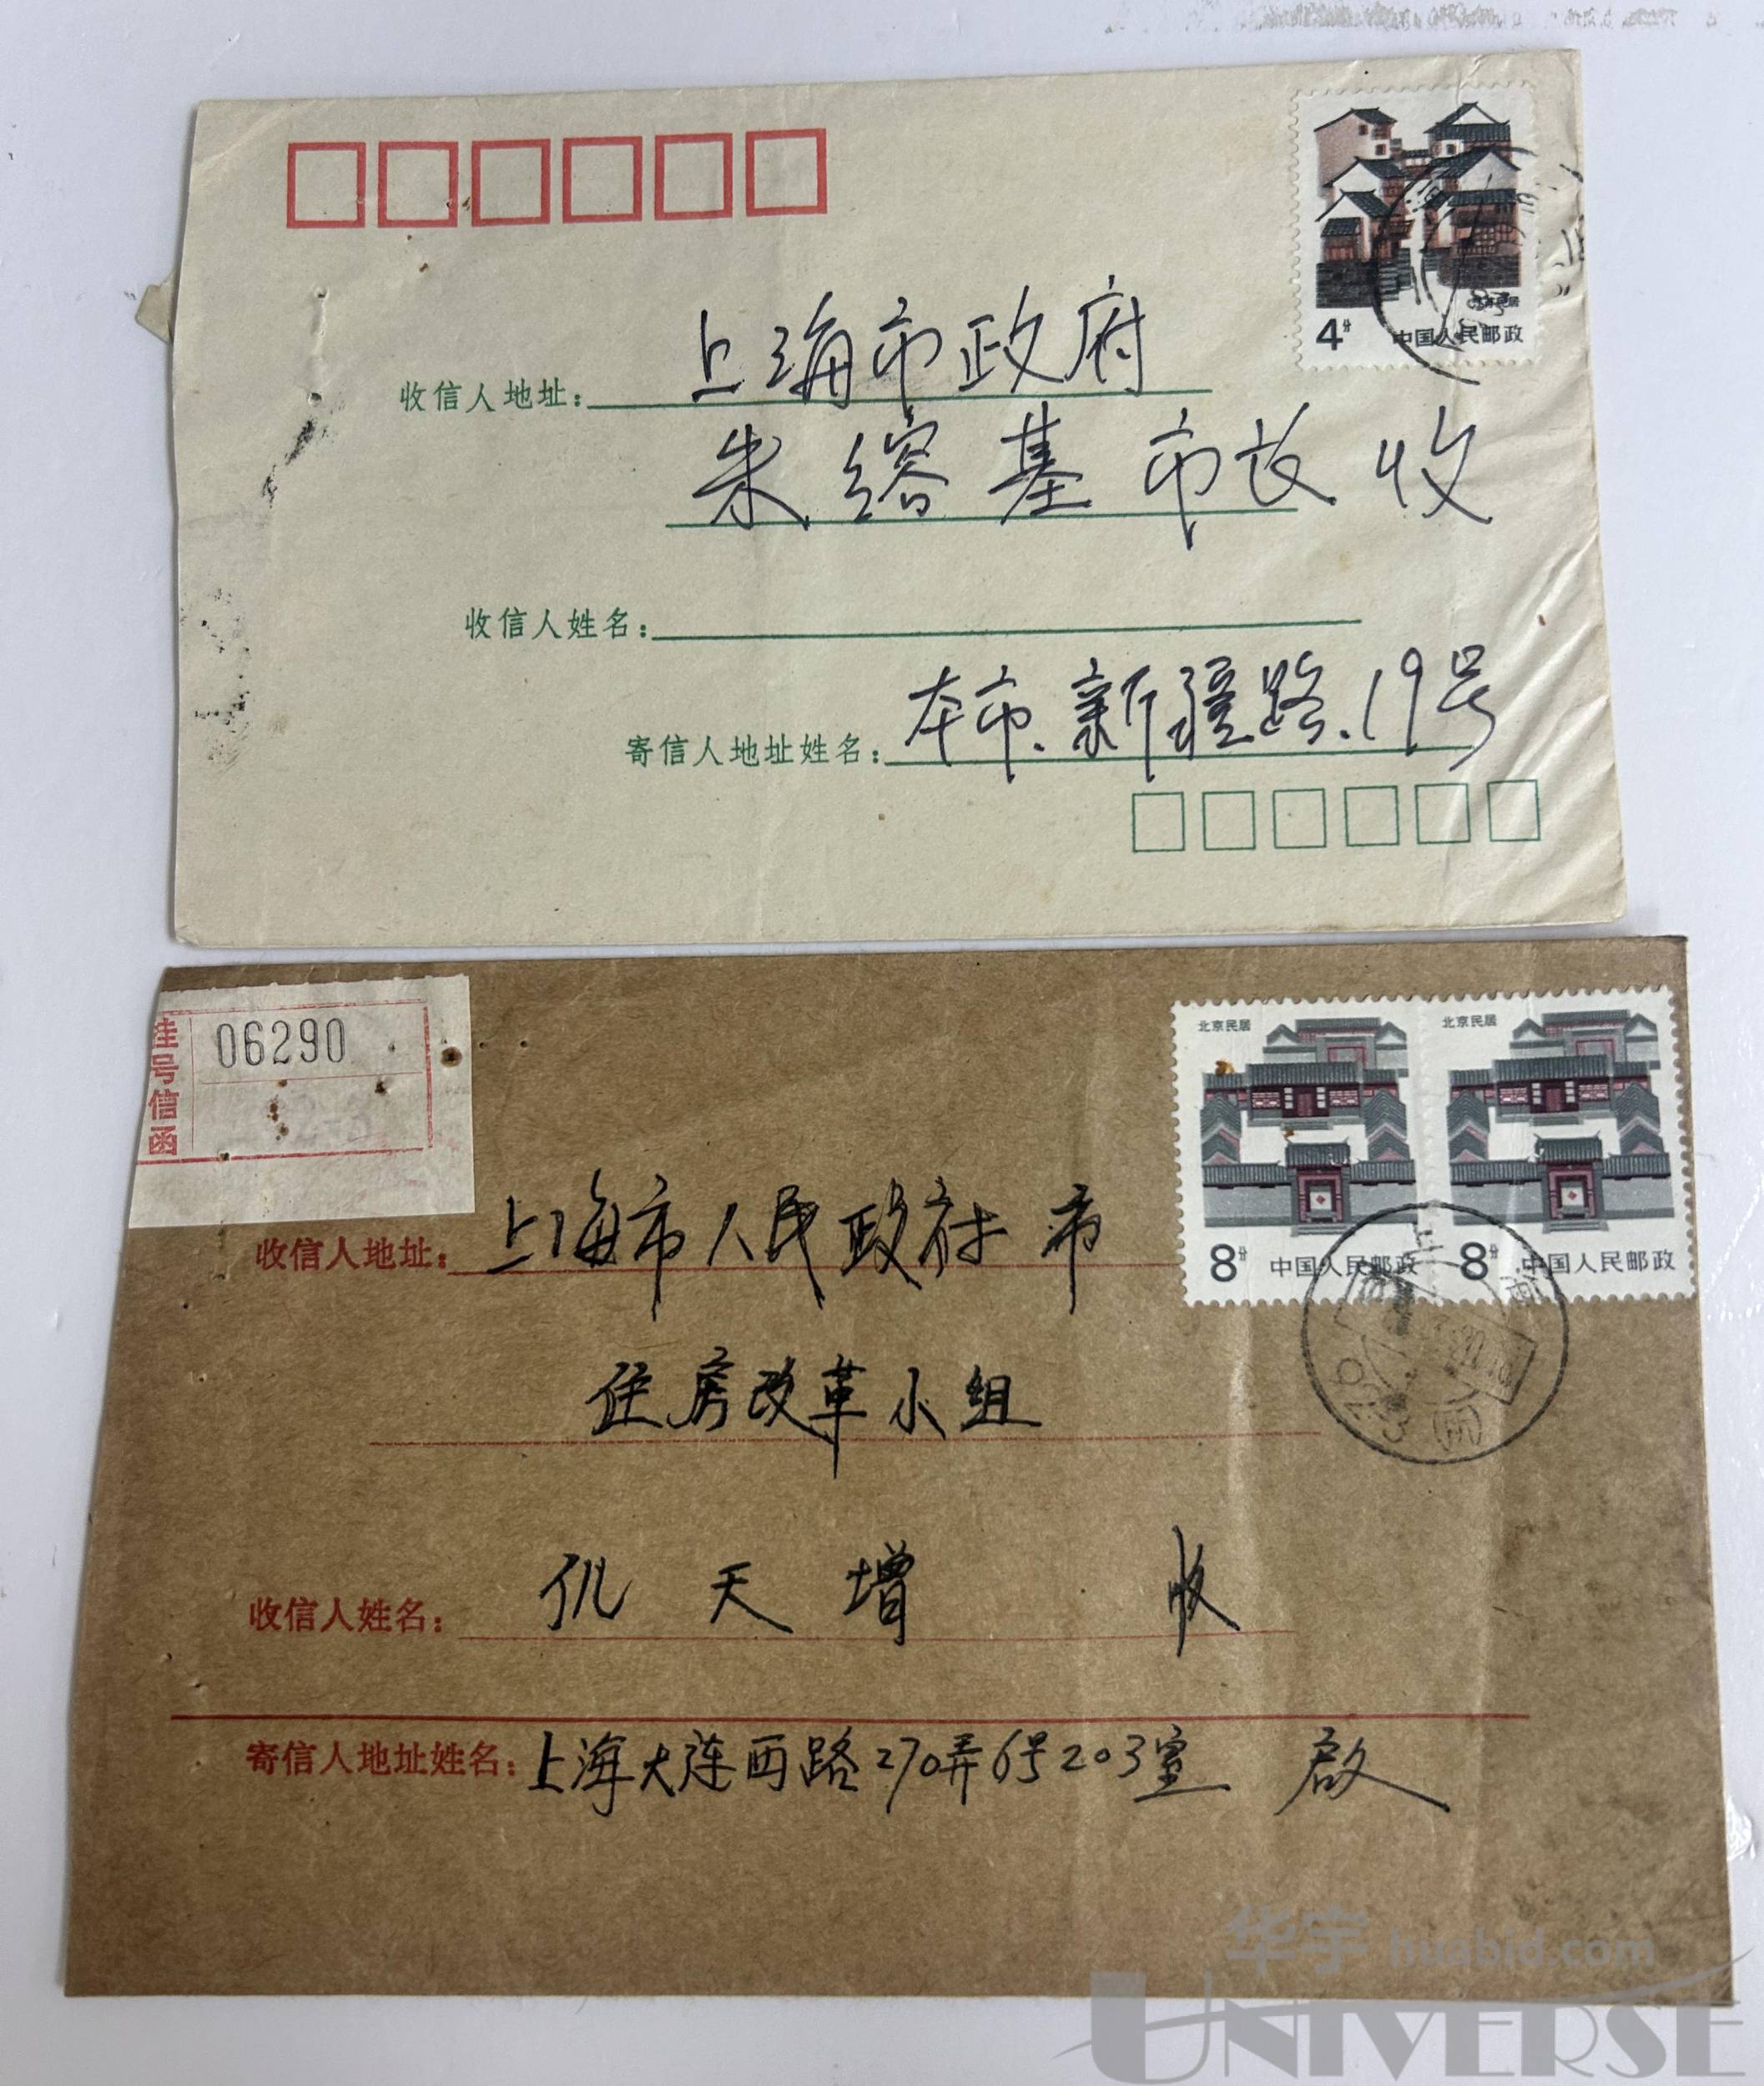 4分 中国人民邮政
上海市政府
收信人地址：
朱镕基市长 收
收信人姓名：
本市.新疆路.19号
寄信人地址姓名：
挂号信函
06290
北京民居
北京民居
8分 中国人民邮政
8分 中国人民邮政
收信人地址：上海市人民政府 市
住房改革小组
收信人姓名：仉天增 收
寄信人地址姓名：上海大连西路270弄6号203室 启
华宇 huabid.com
UNIVERSE